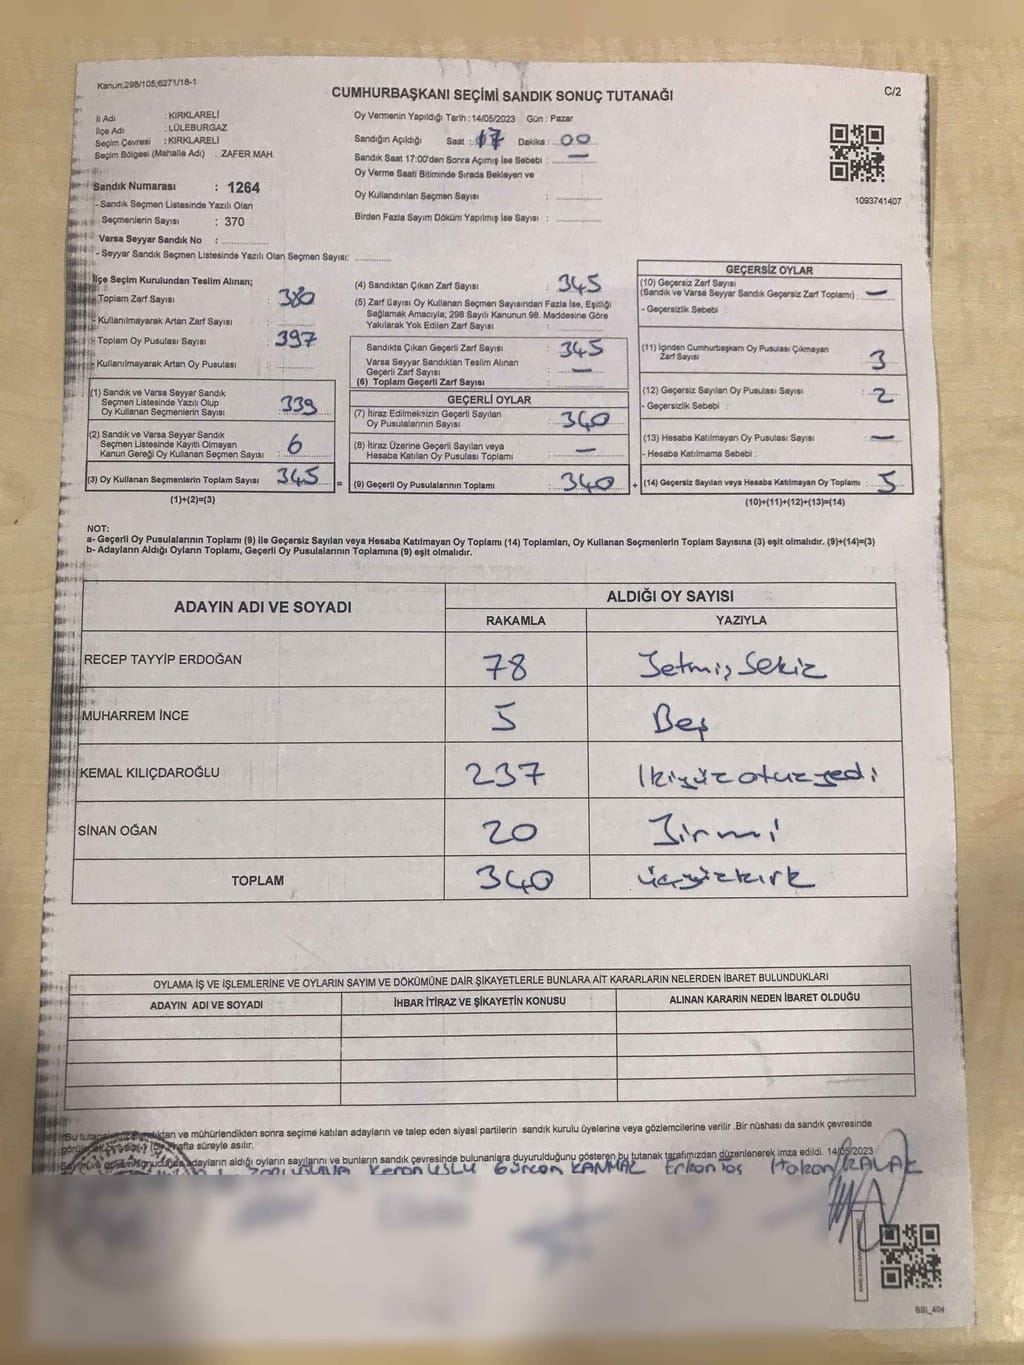 Kanun:298/105,6271/18-1
CUMHURBAŞKANI SEÇİMİ SANDIK SONUÇ TUTANAĞI
C/2
İl Adı : KIRKLARELİ
İlçe Adı : LÜLEBURGAZ
Seçim Çevresi : KIRKLARELİ
Seçim Bölgesi (Mahalle Adı) : ZAFER MAH.
Sandık Numarası : 1264
- Sandık Seçmen Listesinde Yazılı Olan
Seçmenlerin Sayısı : 370
Varsa Seyyar Sandık No :
- Seyyar Sandık Seçmen Listesinde Yazılı Olan Seçmen Sayısı:
Oy Vermenin Yapıldığı Tarih : 14/05/2023 Gün : Pazar
Sandığın Açıldığı Saat : 17 Dakika : 00
Sandık Saat 17:00'den Sonra Açımış İse Sebebi : —
Oy Verme Saati Bitiminde Sırada Bekleyen ve
Oy Kullandırılan Seçmen Sayısı :
Birden Fazla Sayım Döküm Yapılmış İse Sayısı :
1093741407
İlçe Seçim Kurulundan Teslim Alınan;
Toplam Zarf Sayısı : 380
- Kullanılmayarak Artan Zarf Sayısı :
- Toplam Oy Pusulası Sayısı : 397
- Kullanılmayarak Artan Oy Pusulası :
(1) Sandık ve Varsa Seyyar Sandık
Seçmen Listesinde Yazılı Olup
Oy Kullanan Seçmenlerin Sayısı : 339
(2) Sandık ve Varsa Seyyar Sandık
Seçmen Listesinde Kayıtlı Olmayan
Kanun Gereği Oy Kullanan Seçmen Sayısı : 6
(3) Oy Kullanan Seçmenlerin Toplam Sayısı : 345 =
(1)+(2)=(3)
(4) Sandıktan Çıkan Zarf Sayısı : 345
(5) Zarf Sayısı Oy Kullanan Seçmen Sayısından Fazla İse, Eşitliği
Sağlamak Amacıyla; 298 Sayılı Kanunun 98. Maddesine Göre
Yakılarak Yok Edilen Zarf Sayısı :
Sandıkta Çıkan Geçerli Zarf Sayısı : 345
Varsa Seyyar Sandıktan Teslim Alınan
Geçerli Zarf Sayısı : —
(6) Toplam Geçerli Zarf Sayısı :
GEÇERLİ OYLAR
(7) İtiraz Edilmeksizin Geçerli Sayılan
Oy Pusulalarının Sayısı : 340
(8) İtiraz Üzerine Geçerli Sayılan veya
Hesaba Katılan Oy Pusulası Toplamı : —
(9) Geçerli Oy Pusulalarının Toplamı : 340 +
GEÇERSİZ OYLAR
(10) Geçersiz Zarf Sayısı
(Sandık ve Varsa Seyyar Sandık Geçersiz Zarf Toplamı) : —
- Geçersizlik Sebebi :
(11) İçinden Cumhurbaşkanı Oy Pusulası Çıkmayan
Zarf Sayısı : 3
(12) Geçersiz Sayılan Oy Pusulası Sayısı : 2
- Geçersizlik Sebebi :
(13) Hesaba Katılmayan Oy Pusulası Sayısı : —
- Hesaba Katılmama Sebebi :
(14) Geçersiz Sayılan veya Hesaba Katılmayan Oy Toplamı : 5
(10)+(11)+(12)+(13)=(14)
NOT:
a- Geçerli Oy Pusulalarının Toplamı (9) ile Geçersiz Sayılan veya Hesaba Katılmayan Oy Toplamı (14) Toplamları, Oy Kullanan Seçmenlerin Toplam Sayısına (3) eşit olmalıdır. (9)+(14)=(3)
b- Adayların Aldığı Oyların Toplamı, Geçerli Oy Pusulalarının Toplamına (9) eşit olmalıdır.
ADAYIN ADI VE SOYADI
ALDIĞI OY SAYISI
RAKAMLA YAZIYLA
RECEP TAYYİP ERDOĞAN 78 Yetmiş Sekiz
MUHARREM İNCE 5 Beş
KEMAL KILIÇDAROĞLU 237 İkiyüz otuz yedi
SİNAN OĞAN 20 Yirmi
TOPLAM 340 üçyüzkırk
OYLAMA İŞ VE İŞLEMLERİNE VE OYLARIN SAYIM VE DÖKÜMÜNE DAİR ŞİKAYETLERLE BUNLARA AİT KARARLARIN NELERDEN İBARET BULUNDUKLARI
ADAYIN ADI VE SOYADI İHBAR İTİRAZ VE ŞİKAYETİN KONUSU ALINAN KARARIN NEDEN İBARET OLDUĞU
Bu ve mühürlendikten sonra seçime katılan adayların ve talep eden siyasi partilerin sandık kurulu üyelerine veya gözlemcilerine verilir .Bir nüshası da sandık çevresinde
hafta süreyle asılır.
adayların aldığı oyların sayılarını ve bunların sandık çevresinde bulunanlara duyurulduğunu gösteren bu tutanak tarafımızdan düzenlenerek imza edildi. 14/05/2023
Kenan USLU Gürcan KANMAZ Erkan Hakan KALAK
BSI_404